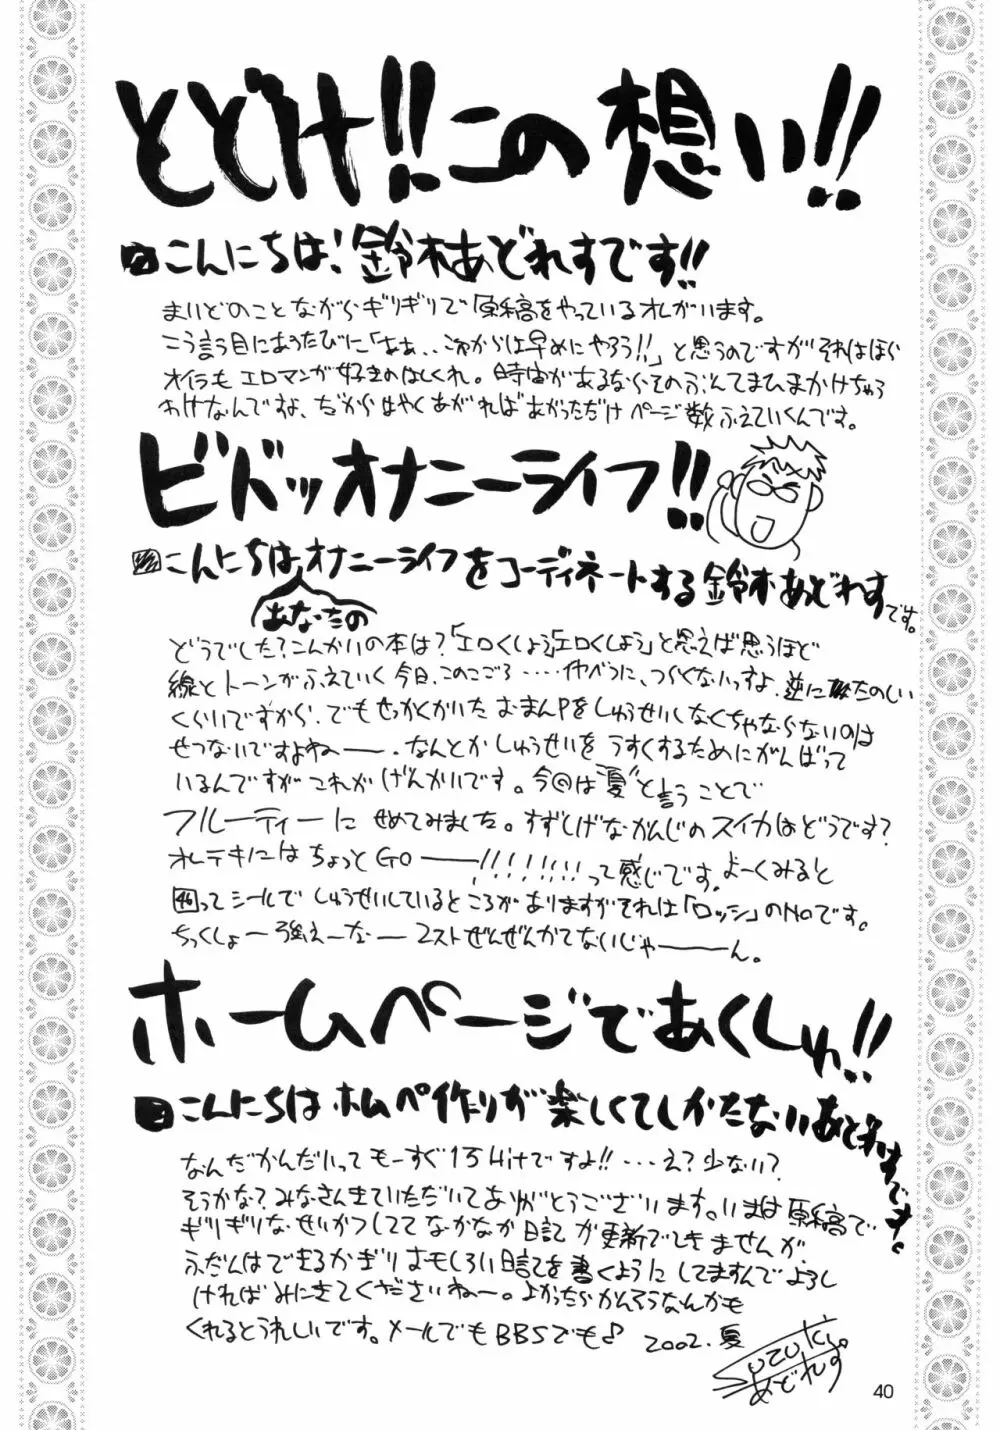 とどけ!!この想い!!
こんにちは!鈴木あどれすです!!
まいどのことながらギリギリで原稿をやっているオレがいます。
こう言う目にあうたびに「ああ‥これからは早めにやろう!!」と思うのですがそれはほら
オイラもエロマンガ好きのはしくれ。時間があるならそのぶんてまひまかけちゃう
わけなんですよ、だからはやくあがればあがっただけページ数ふえていくんです。
ビドッオナニーライフ!!
こんにちはあなたのオナニーライフをコーディネートする鈴木あどれすです。
どうでした?こんかいの本は?「エロくしよう」「エロくしよう」と思えば思うほど
線とトーンがふえていく今日、このごろ‥‥べつに、つらくないっすよ、逆にたのしい
くらいですから。でもせっかくかいたおまんPをしゅうせいしなくちゃならないのは
せつないですよねー。なんとかしゅうせいをうすくするためにがんばって
いるんですがこれがげんかいです。今回は"夏"と言うことで
フルーティーにせめてみました。すずしげなかんじのスイカはどうです?
オレテキにはちょっとGOー!!!!!!!って感じです。よーくみると
46ってシールでしゅうせいしているところがありますがそれは「ロッシ」のNoです。
ちっくしょー強えーなーストぜんぜんかてないじゃーん。
ホームページであくしゅ!!
こんにちはホムペ作りが楽しくてしかたないあどれすです。
なんだかんだいってもーすぐ1万Hitですよ!!‥‥え?少ない?
そうかな?みなさんきていただいてありがとうございます。いまは原稿で
ギリギリなせいかつしててなかなか日記が更新できませんが、
ふだんはできるかぎりおもしろい日記を書くようにしてますんでよろし
ければみにきてくださいねー。よかったらかんそうなんかも
くれるとうれしいです。メールでもBBSでも♪ 2002.夏
Suzuki
あどれす
40